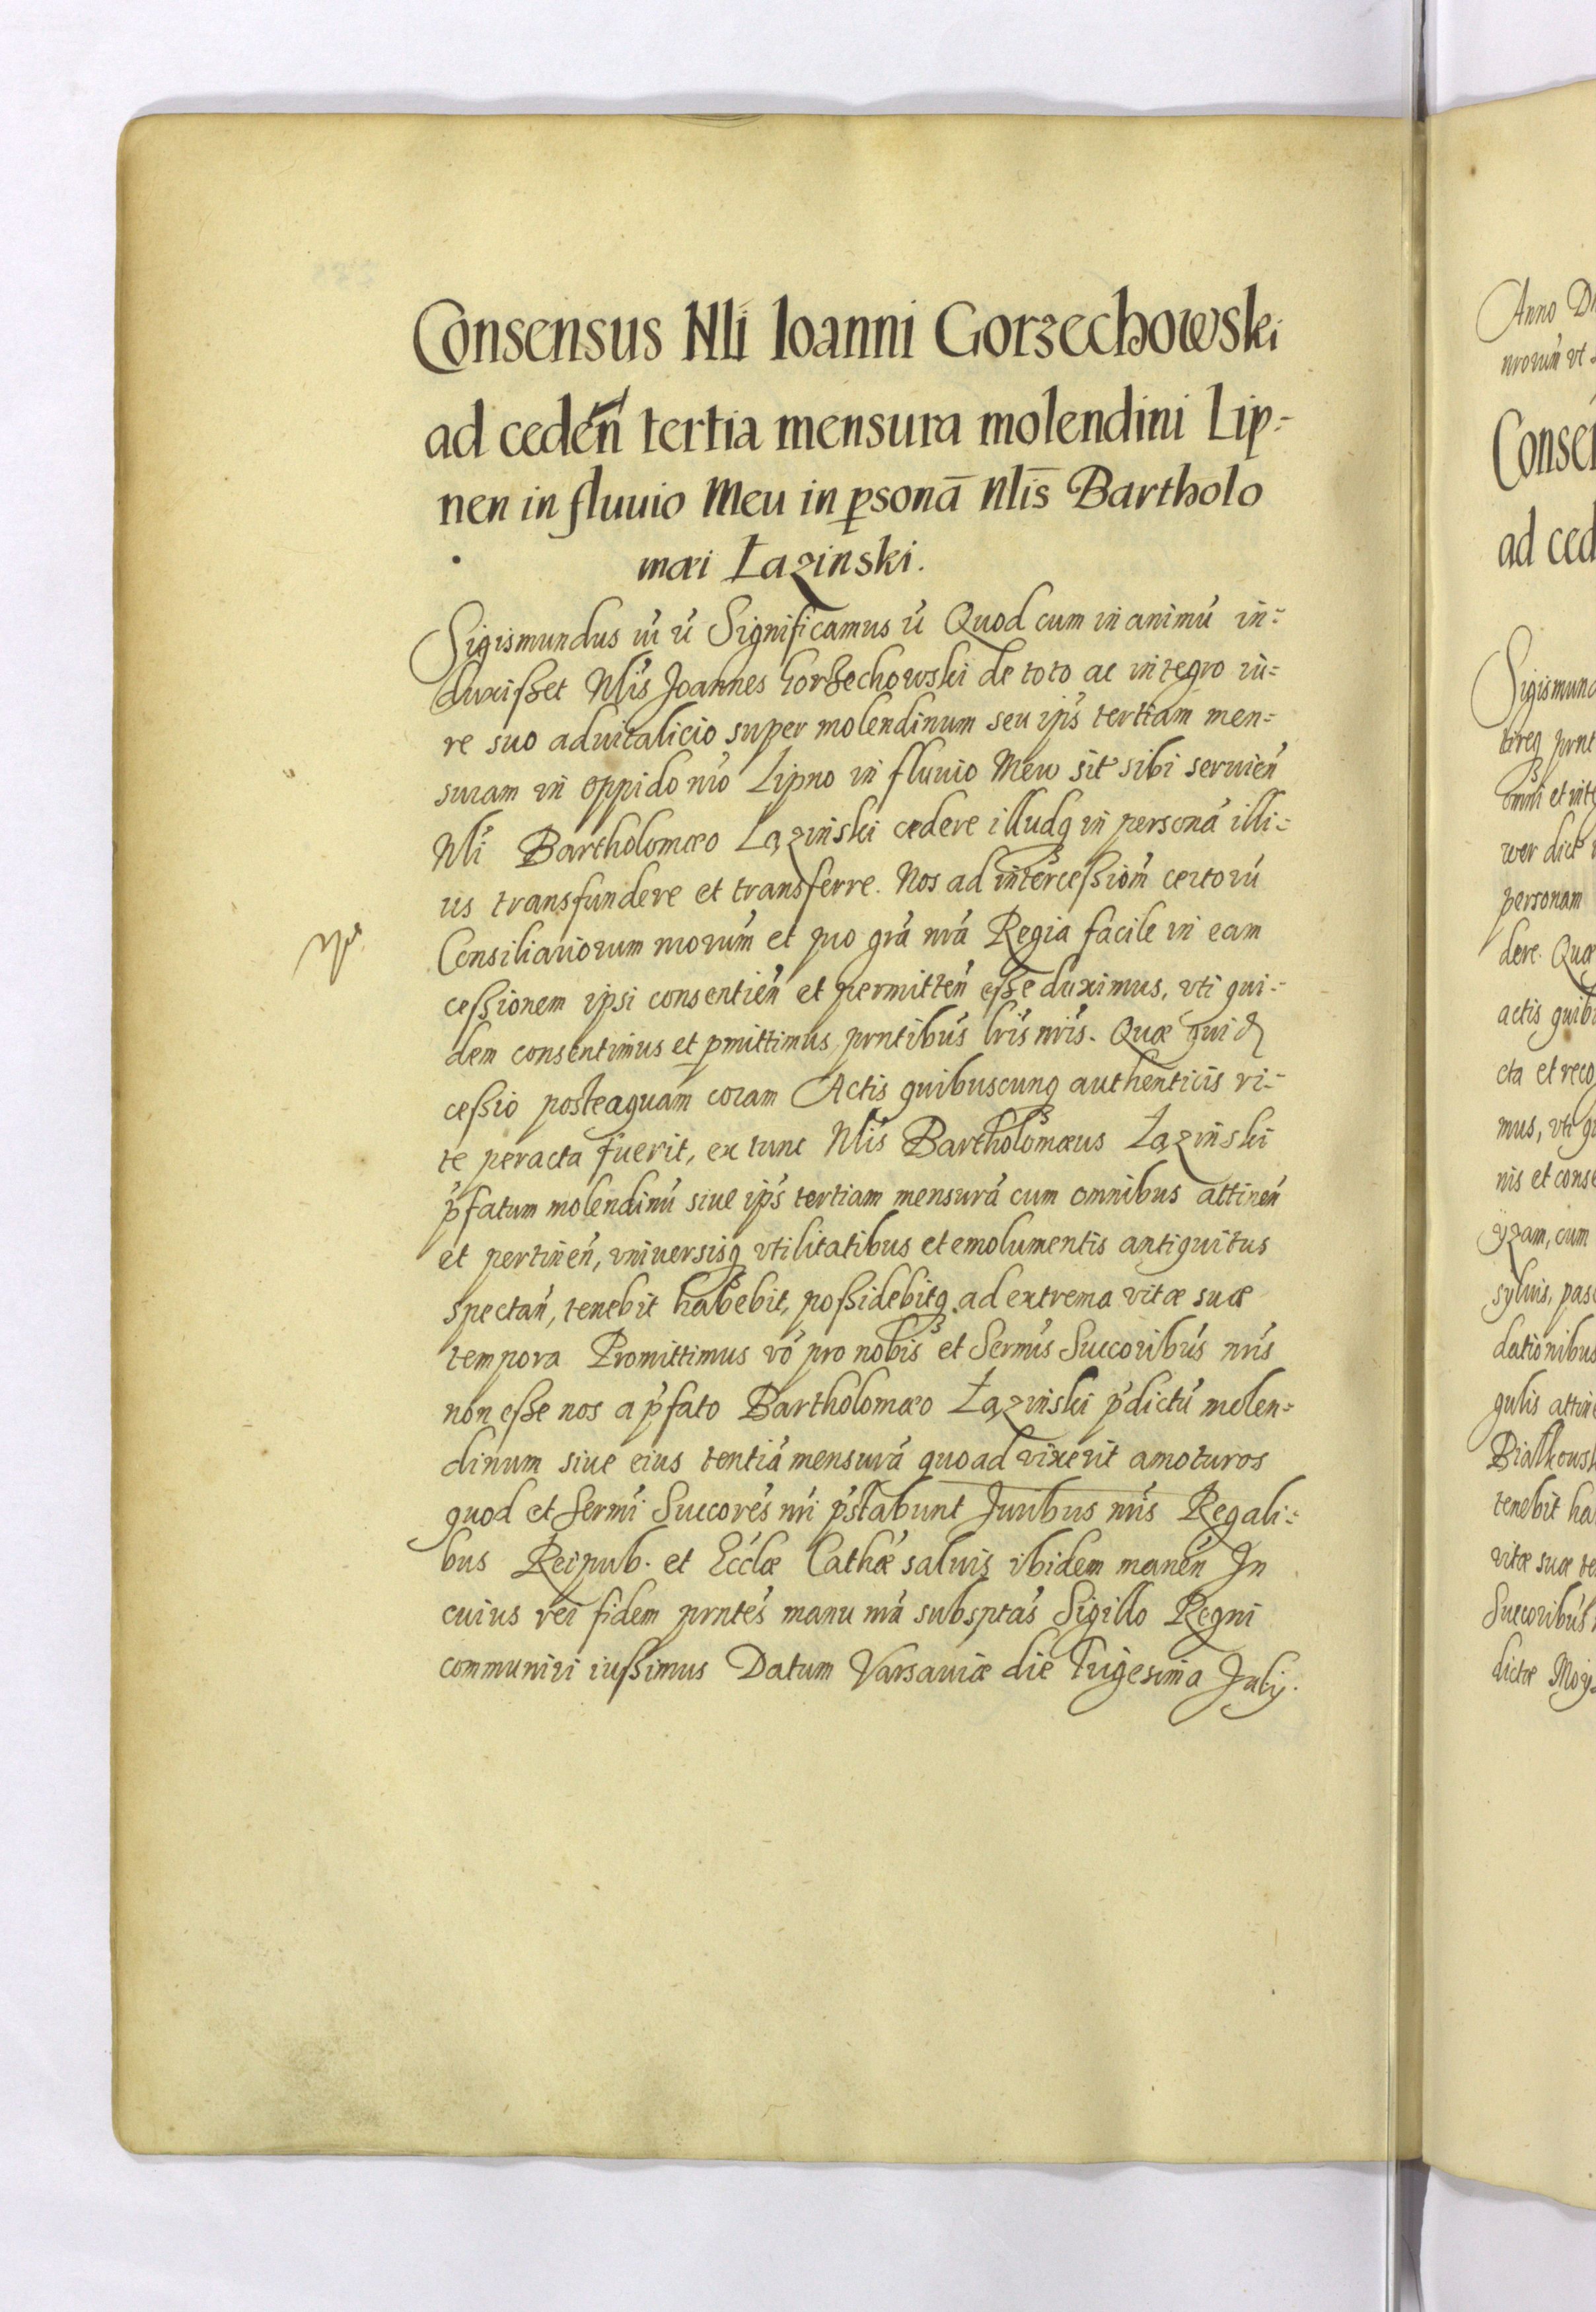 Consensus Nli Ioanni Gorzechowski
ad ceden̄ tertia mensura molendini Lip-
nen in fluuio Meu in ꝑsonā Nlis Bartholo
mæi Łazinski.
Sigismundus iii ú Significamus ú Quod cum in animú in-
duxißet Nlis Joannes Gorzechowski de toto ac integro iu-
re suo aduitalicio super molendinum seu ips tertiam men-
suram in oppido nro Lipno in fluuio Meu sit sibi seruien
Nli Bartholomæo Lazinski cedere illudq in persona illi-
us transfundere et transferre. Nos ad interceßiom certorú
Consiliariorum nrorum et pro gra nra Regia facile in eam
ceßionem ipsi consentien et permitten eße duximus, vti qui-
dem consentimus et ꝑmittimus prntibus lris nris. Quæ quid
ceßio posteaquam coram Actis quibuscunq authenticis ri-
te peracta fuerit, ex tunc Nlis Bartholomæus Łazinski
pfatum molendinú siue ips tertiam mensurá cum omnibus attinen
et pertinen, vniuersisq vtilitatibus et emolumentis antiquitus
spectan, tenebit habebit, poßidebitq ad extrema vitæ suæ
tempora Promittimus vo pro nobis et Sermis Succoribus nris
non eße nos a pfato Bartholomæo Łazinski pdictú molen-
dinum siue eius tentiá mensurá quoad vixerit amoturos
quod et Sermi Succores nri pstabunt Juribus nris Regali-
bus Reipub. et Ecclæ Cathæ saluis ibidem manen In
cuius rei fidem prntes manu nra subsptas Sigillo Regni
communiri iußimus Datum Varsauiæ die Trigesima Julij.
Anno D
nrorum vt
Conse
ad ced
Sigismun
omni et int
personam
dere. Quæ
actis quib
cta et reco
mus, vti q
nis et cons
yzam, cum
syluis, pas
dationibus
gulis attin
Bialkows
tenebit ha
vitæ suæ te
Succoribus
dictæ Moy